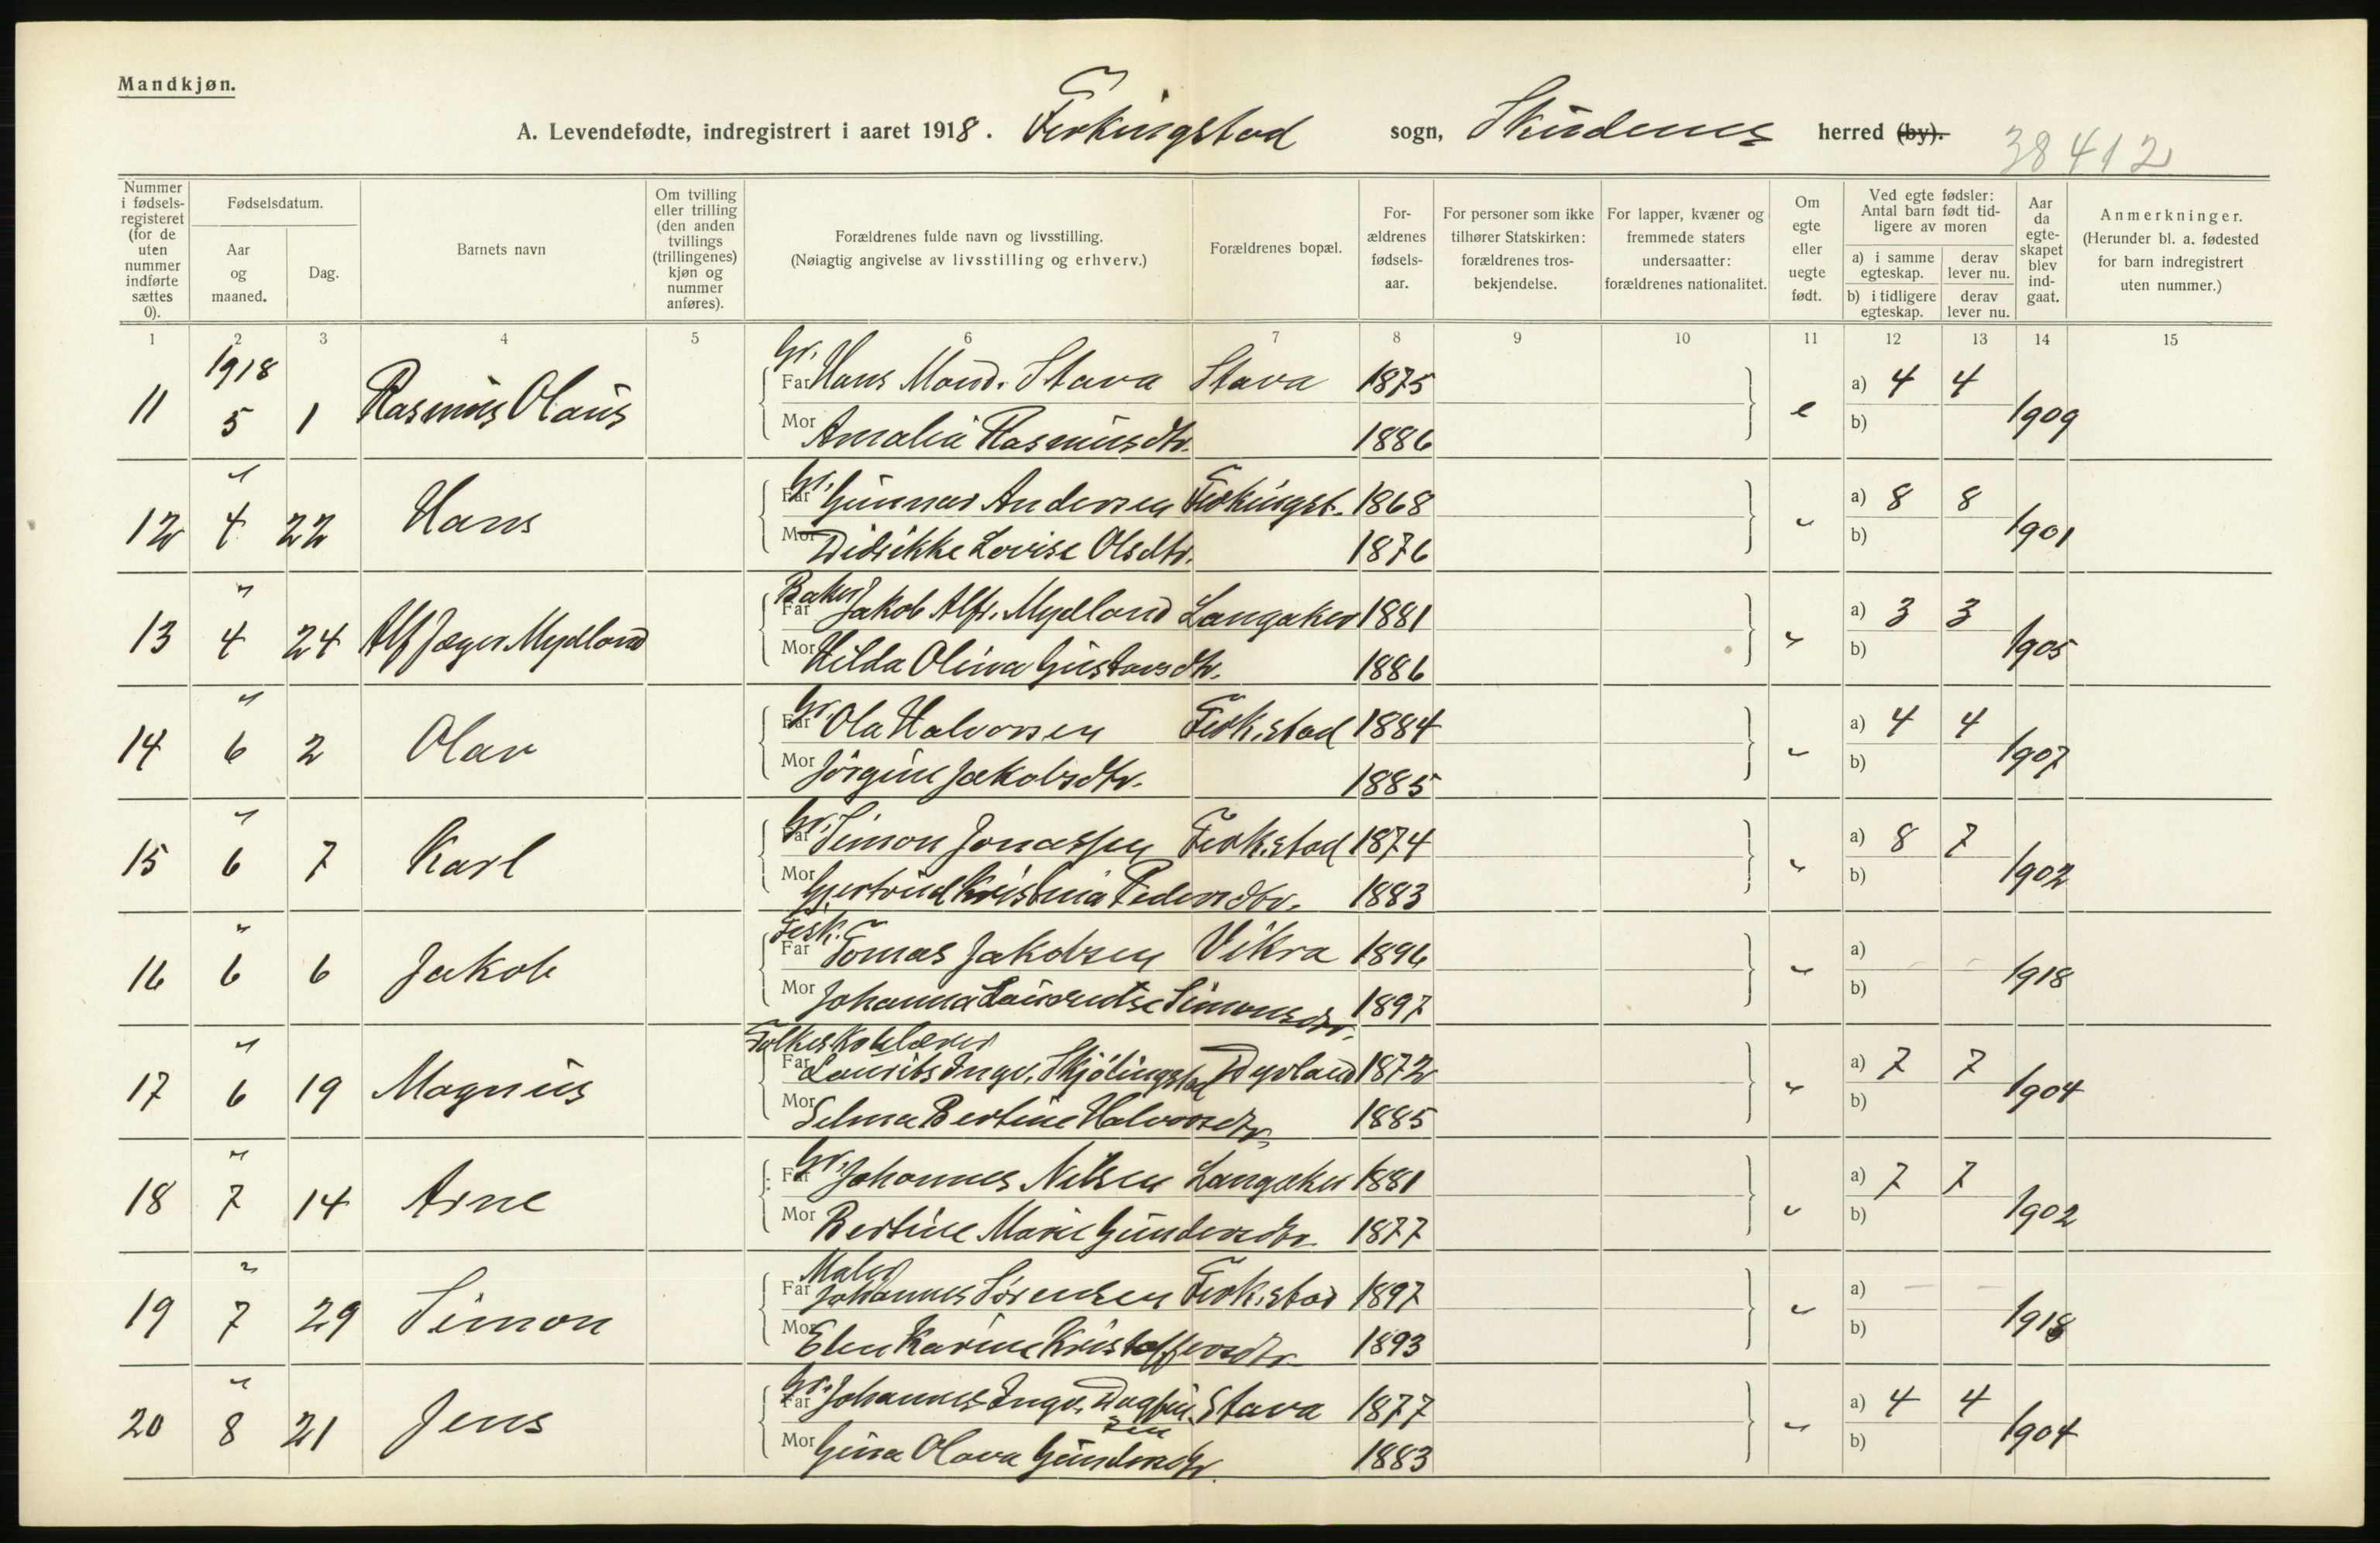 Mandkjøn.
A. Levendefødte, indregistrert i aaret 1918. Ferkingstad sogn, Skudenes herred (by).
38412
Nummer i fødsels-registeret (for de uten nummer indførte sættes 0).
Fødselsdatum.
Aar og maaned.
Dag.
Barnets navn
Om tvilling eller trilling (den anden tvillings (trillingenes) kjøn og nummer anføres).
Forældrenes fulde navn og livsstilling.
(Nøiagtig angivelse av livsstilling og erhverv.)
Forældrenes bopæl.
For-ældrenes fødsels-aar.
For personer som ikke tilhører Statskirken: forældrenes tros-bekjendelse.
For lapper, kvæner og fremmede staters undersaatter: forældrenes nationalitet.
Om egte eller uegte født.
Ved egte fødsler: Antal barn født tid-ligere av moren
a) i samme egteskap. derav lever nu.
b) i tidligere egteskap. derav lever nu.
Aar da egte-skapet blev ind-gaat.
Anmerkninger.
(Herunder bl. a. fødested for barn indregistrert uten nummer.)
1 2 3 4 5 6 7 8 9 10 11 12 13 14 15
1918
Gr.
11 5 1 Rasmus Olaus Far Hans Mond. Stava Stava 1875 e a) 4 4 1909
Mor Amalia Rasmusdtr. 1886 b)
Gr.
12 " 4 22 Hans Far Gunnar Andersen Ferkingst. 1868 " a) 8 8 1901
Mor Didrikke Lovise Olsdtr. 1876 b)
Baker
13 " 4 24 Alf Jæger Mydland Far Jakob Alfr. Mydland Langaker 1881 " a) 3 3 1905
Mor Hilda Oliva Gustavsdtr. 1886 b)
Gr.
14 " 6 2 Olav Far Ola Halvorsen Ferk.stad 1884 " a) 4 4 1907
Mor Jörgine Jakobsdtr. 1885 b)
Gr.
15 " 6 7 Karl Far Simon Jonassen Ferk.stad 1874 " a) 8 7 1902
Mor Gjertrud Kristina Pedersdtr. 1883 b)
Fisk.
16 " 6 6 Jakob Far Tomas Jakobsen Vikra 1896 " a) - - 1918
Mor Johanna Laurentse Simonsdtr. 1897 b)
Folkeskolelærer
17 " 6 19 Magnus Far Laurits Ingv. Skjölingstad Dyrland 1872 " a) 7 7 1904
Mor Selma Bertine Halvorsdtr. 1885 b)
Gr.
18 " 7 14 Arne Far Johannes Nilsen Langaker 1881 " a) 7 7 1902
Mor Bertine Marie Gundersdtr. 1877 b)
Maler
19 " 7 29 Simon Far Johannes Sørensen Ferk.stad 1897 " a) - - 1918
Mor Elen Karine Kristoffersdtr. 1893 b)
Gr.
20 " 8 21 Jens Far Johannes Ingv. Dagfin sen Stava 1877 " a) 4 4 1904
Mor Gina Olava Gundersdtr. 1883 b)